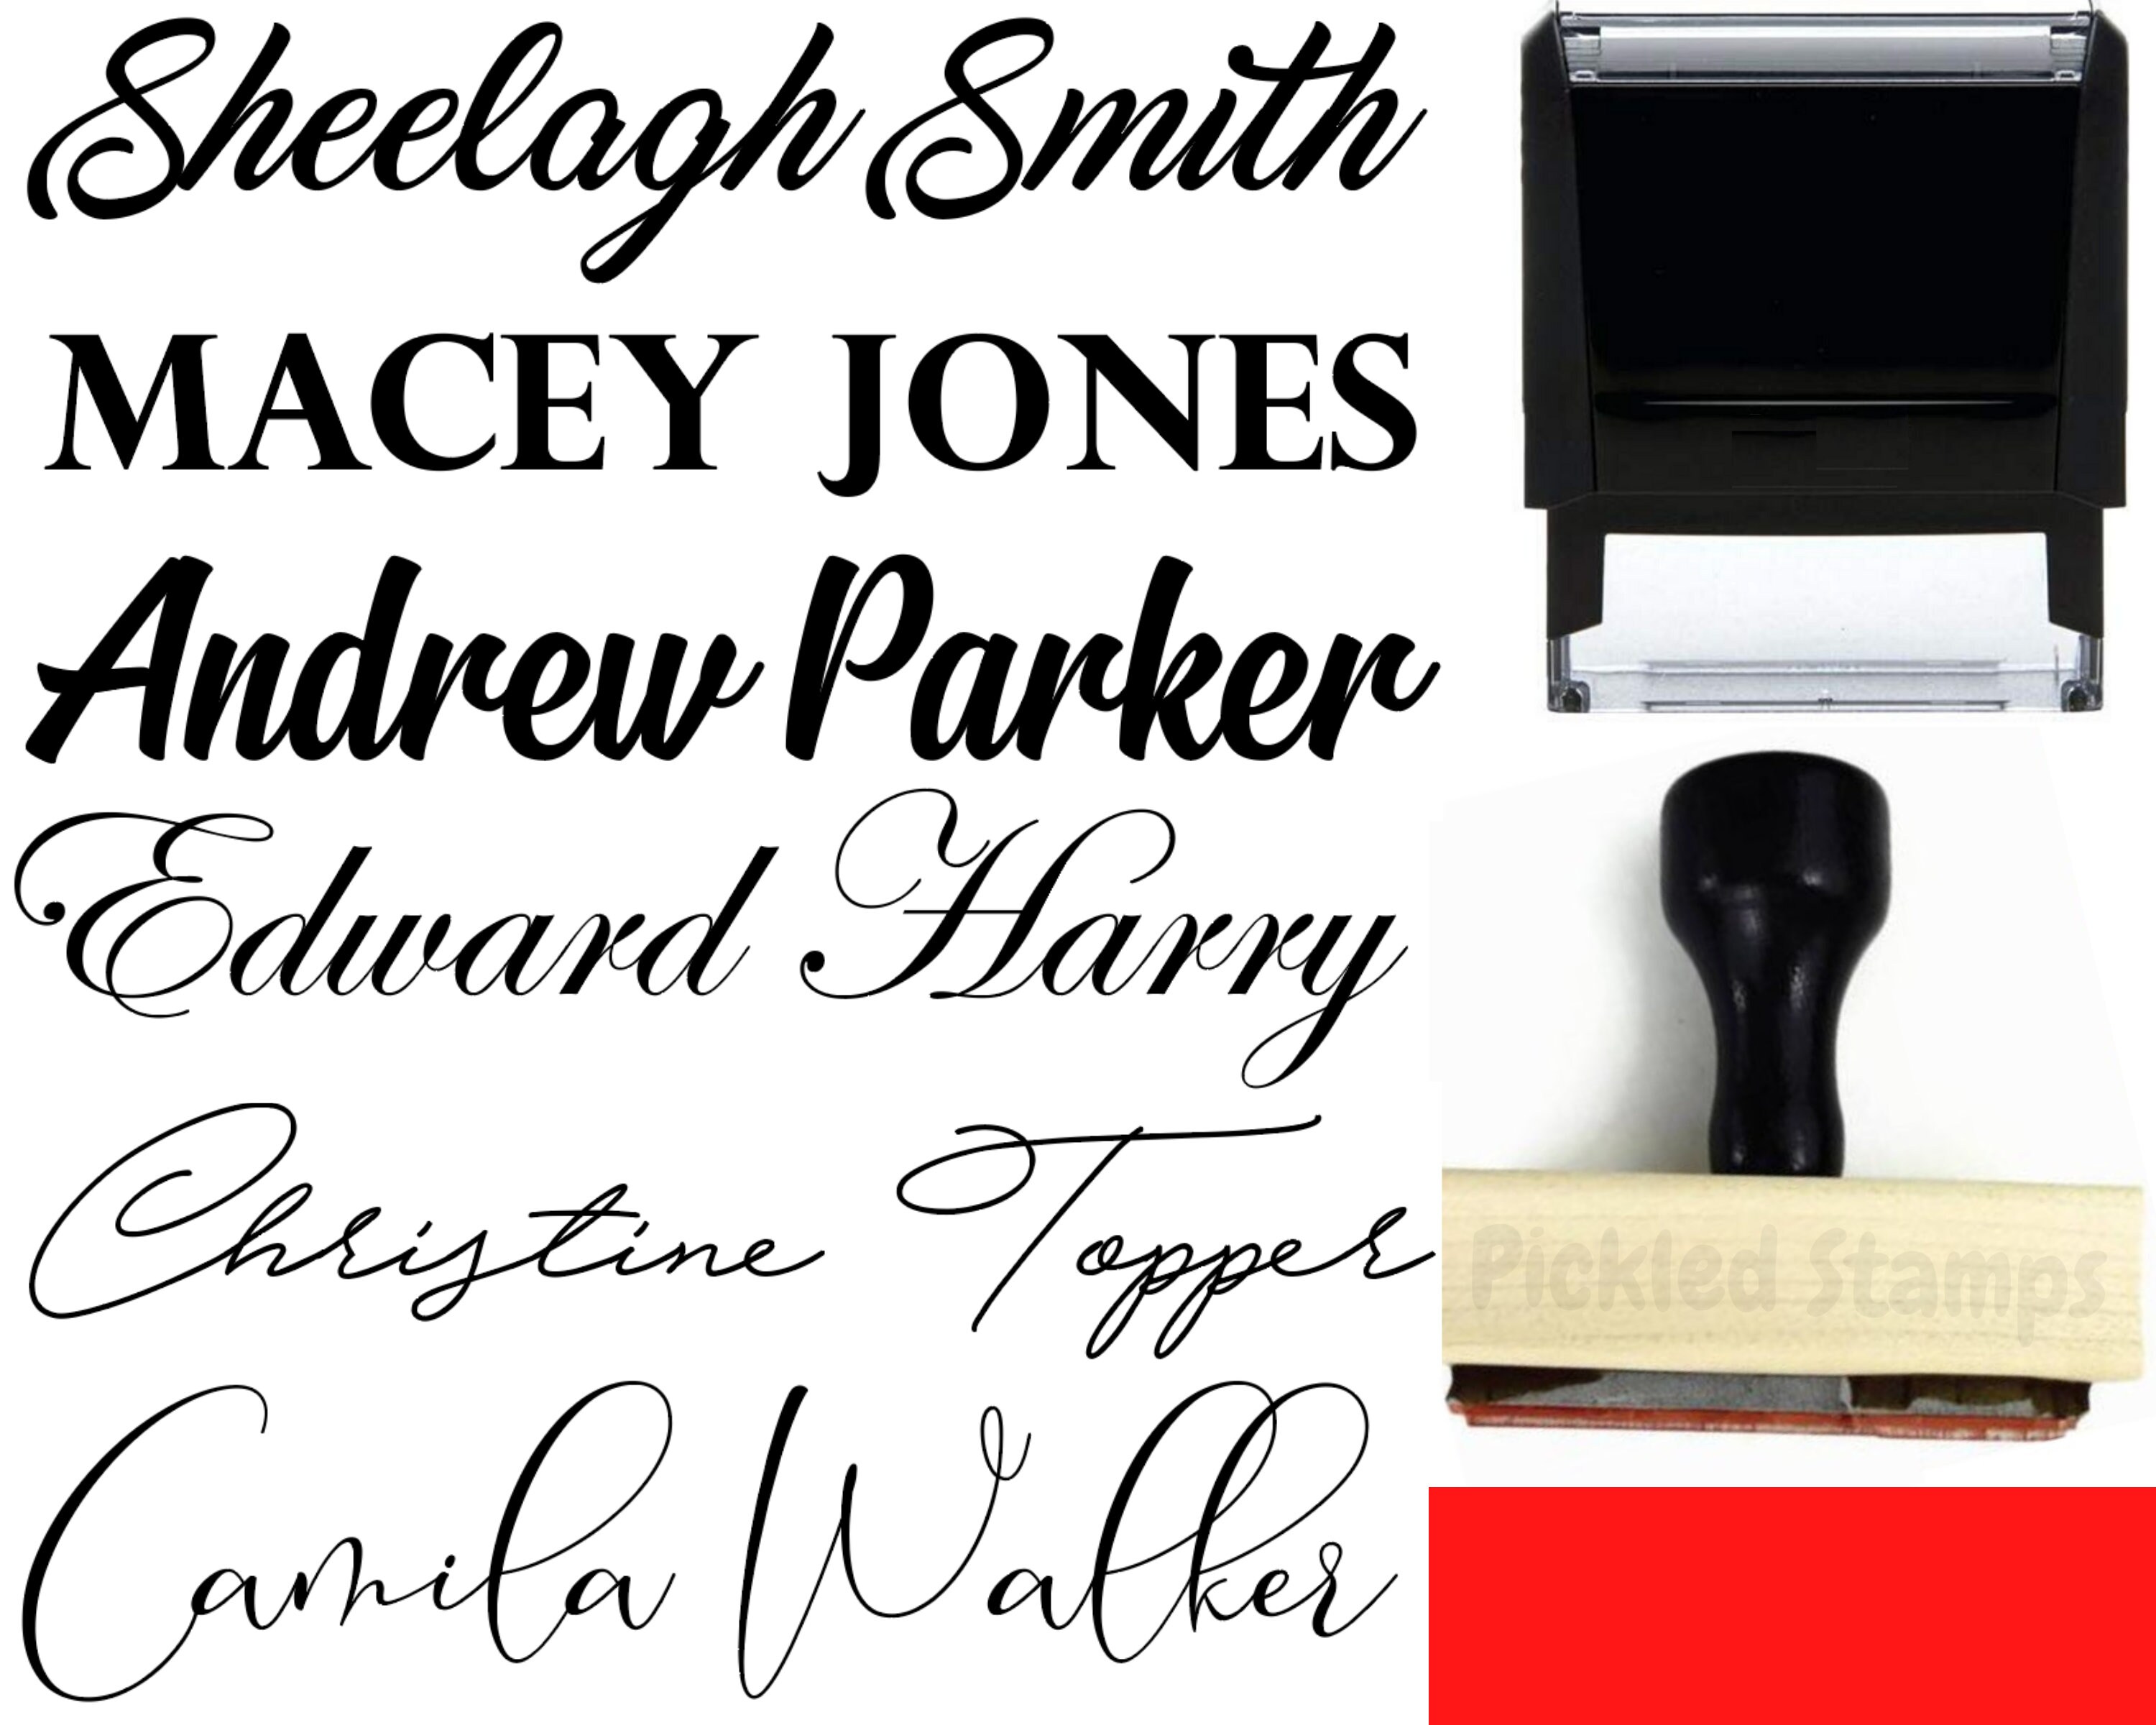 Sheelagh Smith
MACEY JONES
Andrew Parker
Edward Harry
Christine Topper
Camila Walker
Pickled Stamps